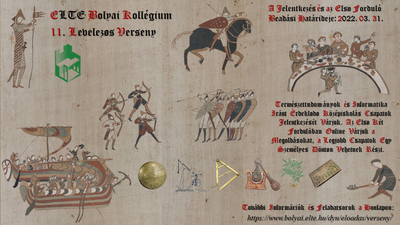 ELTE Bolyai Kollégium
11. Levelezős Verseny
A Jelentkezés és az Első Forduló
Beadási Határideje: 2022. 03. 31.
Természettudományok és Informatika
Iránt Érdeklődő Középiskolás Csapatok
Jelentkezését Várjuk. Az Első Két
Fordulóban Online Várjuk a
Megoldásokat, a Legjobb Csapatok Egy
Személyes Döntőn Vehetnek Részt.
További Információk és Feladatsorok a Honlapon:
https://www.bolyai.elte.hu/dyn/eloadas/verseny/